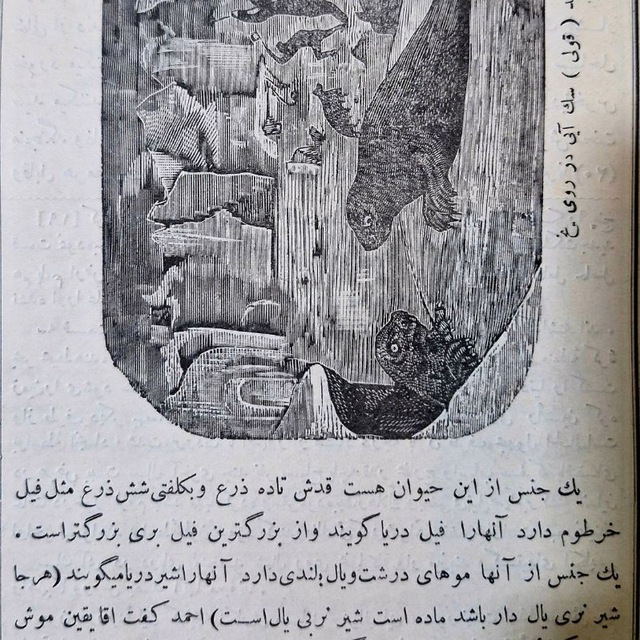 ( قولی ) سك آبی در روی یخ
يك جنس از این حیوان هست قدش تاده ذرع وبكلفتی شش ذرع مثل فیل
خرطوم دارد آنهارا فیل دریا گویند واز بزرگترین فیل بری بزرگتر است .
يك جنس از آنها موهای درشت ویال بلندی دارد آنهارا شیر دریا میگویند (هرجا
شیر نری یال دار باشد ماده است شیر نر بی یال است) احمد کفت اقا یقین موش